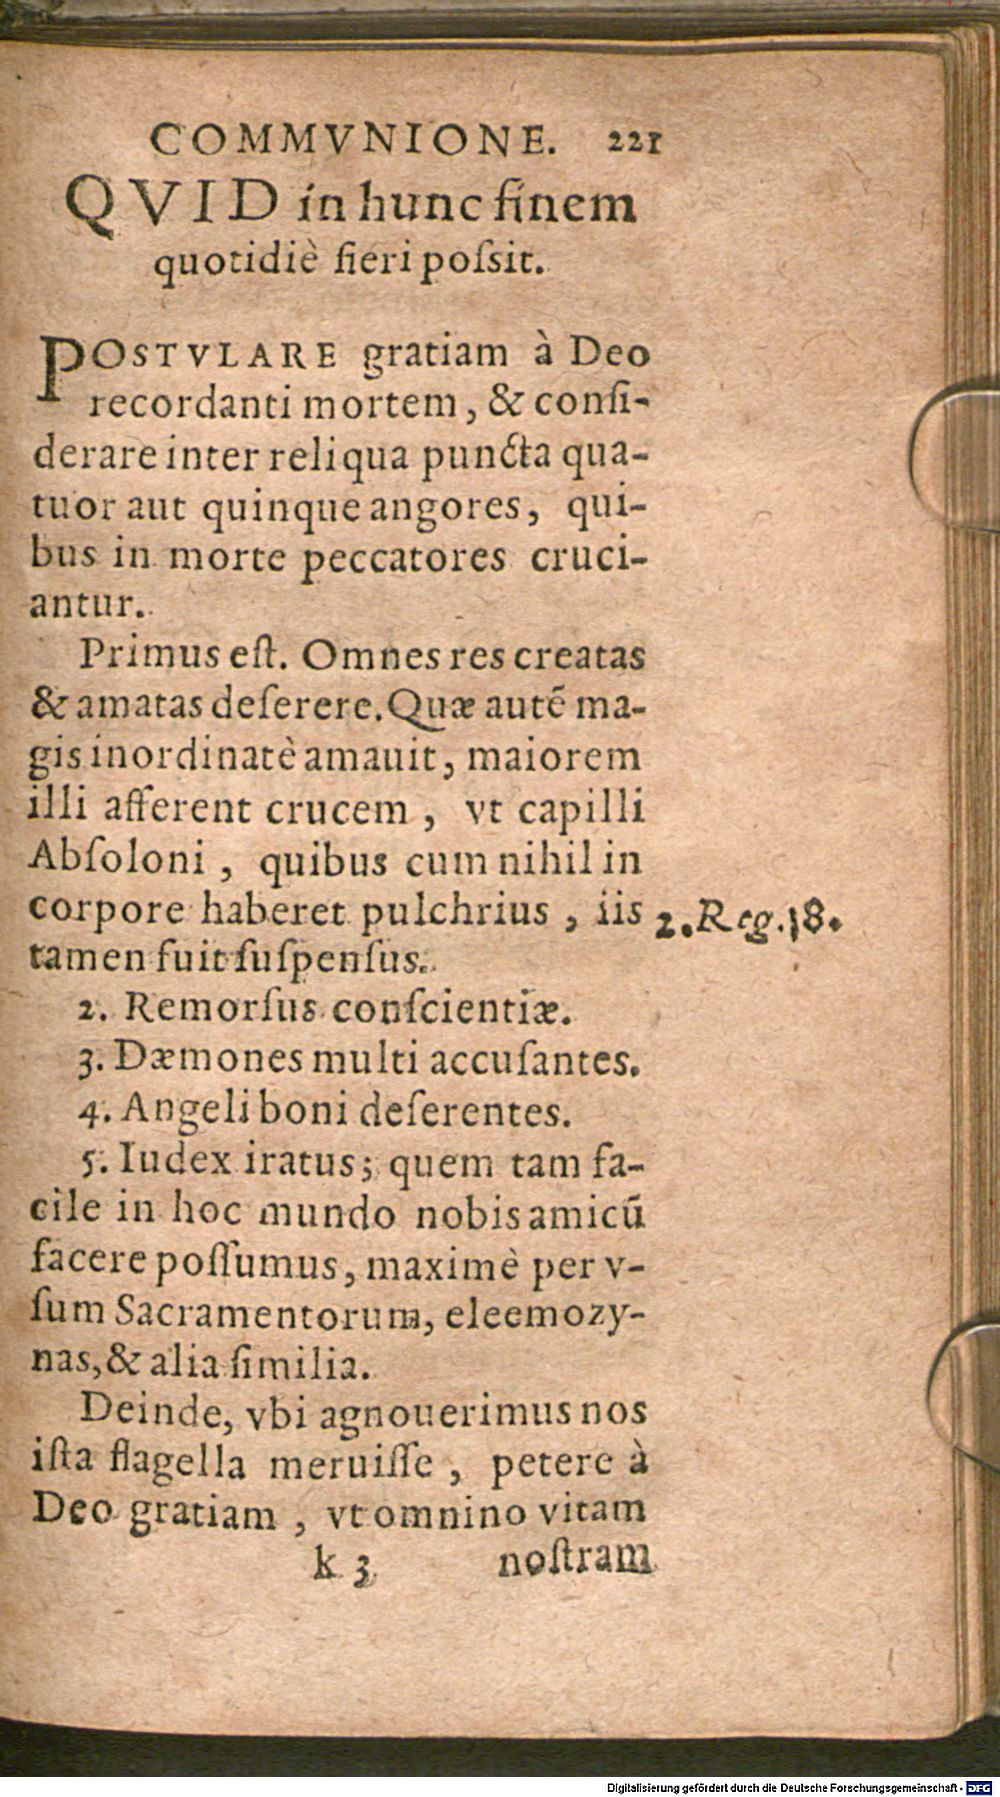 COMMVNIONE. 221
QVID in hunc finem
quotidiè fieri poſsit.
POSTVLARE gratiam à Deo
recordanti mortem, & conſi-
derare inter reliqua puncta qua-
tuor aut quinque angores, qui-
bus in morte peccatores cruci-
antur.
Primus eſt. Omnes res creatas
& amatas deſerere. Quæ autē ma-
gis inordinatè amauit, maiorem
illi afferent crucem, vt capilli
Abſoloni, quibus cum nihil in
corpore haberet pulchrius, iis 2. Reg. 18.
tamen fuit ſuſpenſus.
2. Remorſus conſcientiæ.
3. Dæmones multi accuſantes.
4. Angeli boni deſerentes.
5. Iudex iratus; quem tam fa-
cile in hoc mundo nobis amicū
facere poſſumus, maximè per v-
ſum Sacramentorum, eleemozy-
nas, & alia ſimilia.
Deinde, vbi agnouerimus nos
iſta flagella meruiſſe, petere à
Deo gratiam, vt omnino vitam
k 3 noſtram
Digitalisierung gefördert durch die Deutsche Forschungsgemeinschaft - DFG